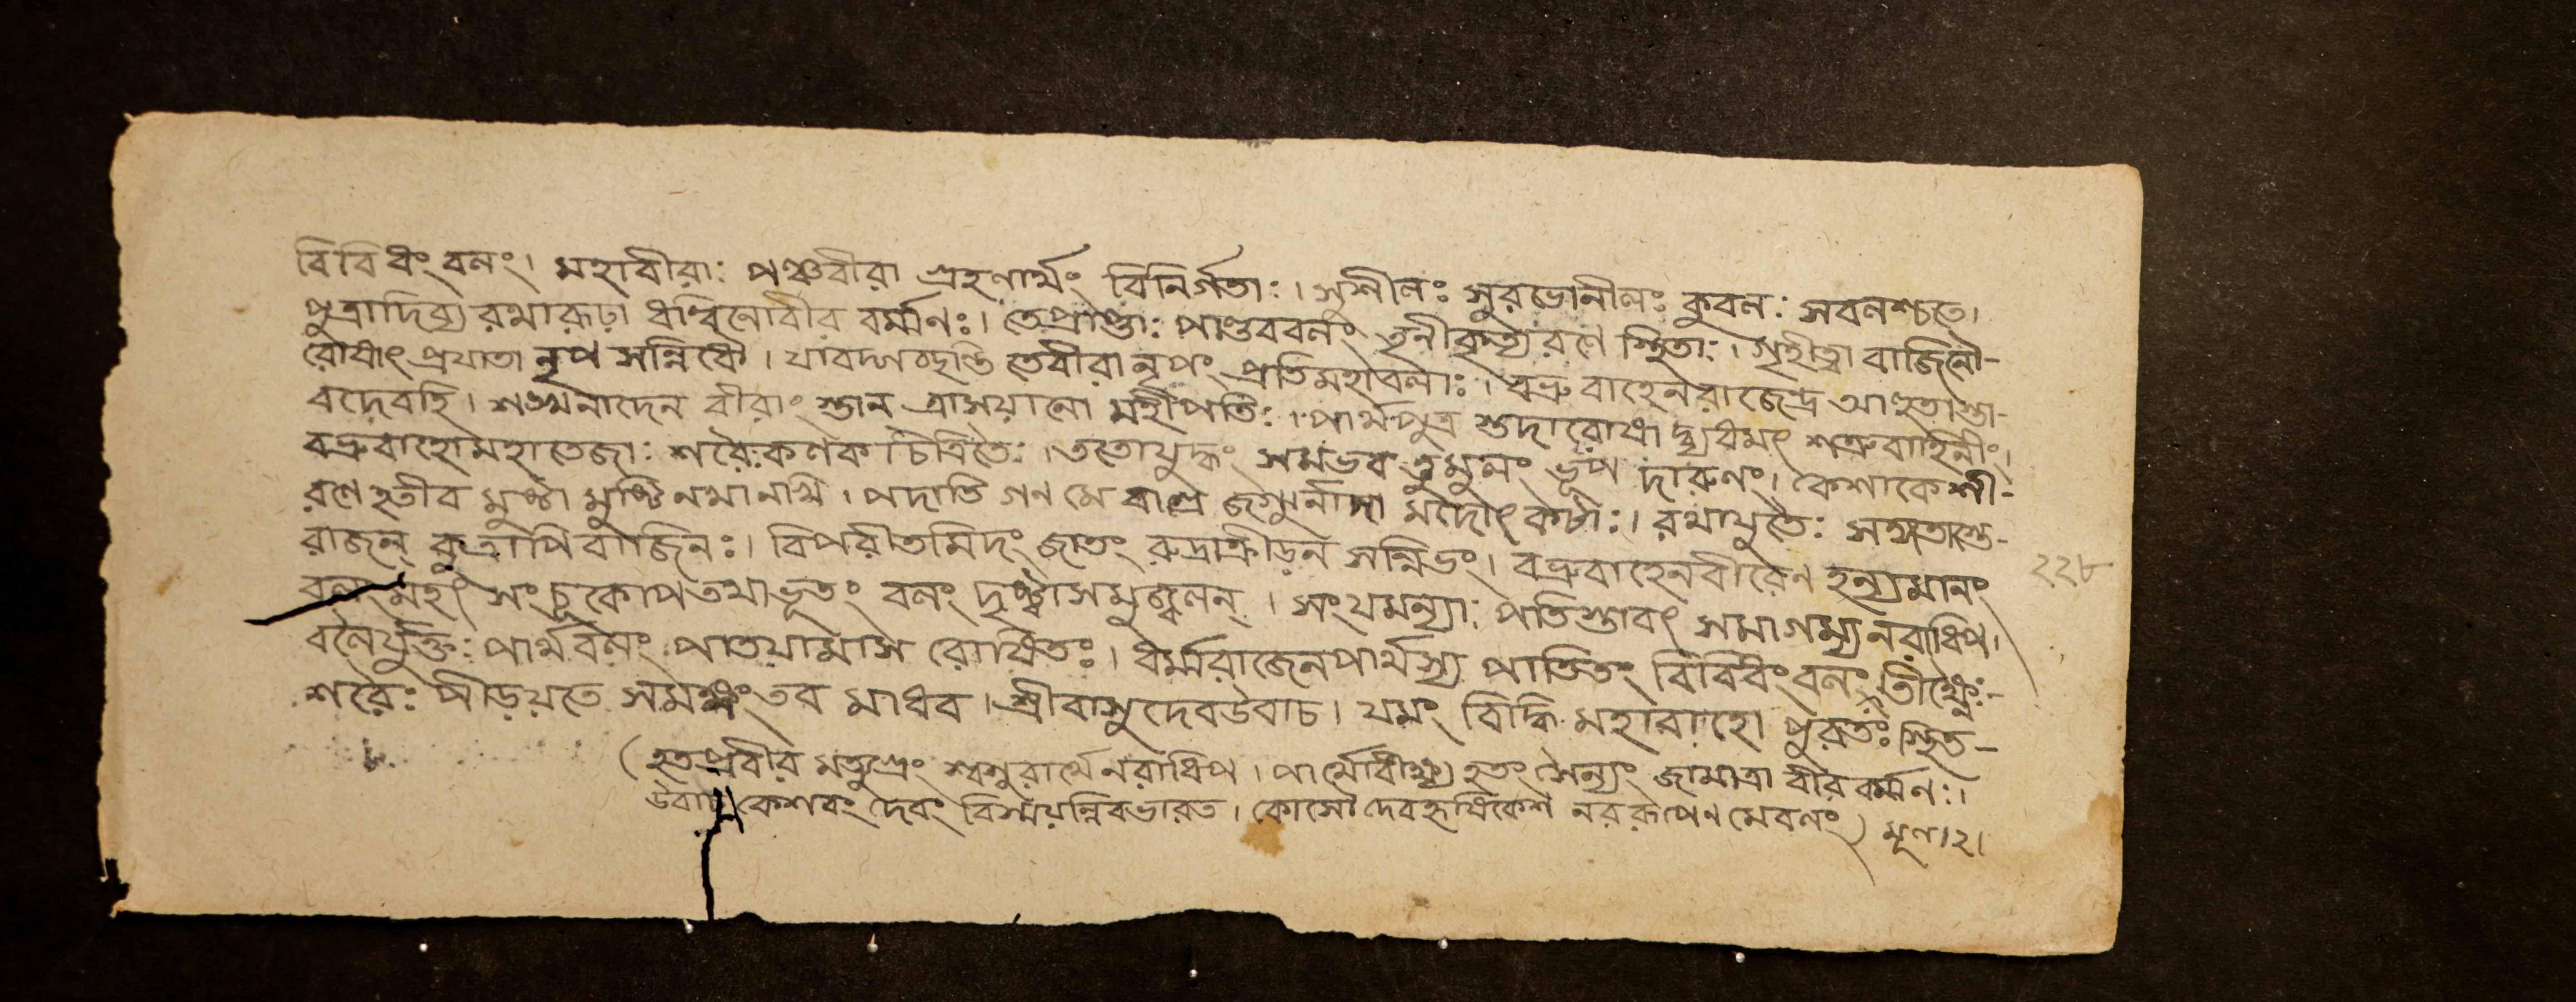 বিবিধং বলং। মহাবীরাঃ পঞ্চবীরা গ্রহণার্থং বিনির্গতাঃ। সুশীলঃ সুরভোনীলঃ কুবলঃ সবলশ্চতে।
পুত্রাদিব্য রথারূঢ়া ধন্বিনোবীর বর্ম্মণঃ। তেপ্রাপ্তাঃ পাণ্ডববলং তৃনীকৃত্য রণে স্থিতাঃ। গৃহীত্বা বাজিনৌ-
রোধাৎ প্রযাতা নৃপ সন্নিধৌ। যাবদ্গচ্ছন্তি তেবীরা নৃপং প্রতিমহাবলাঃ। বভ্রুবাহেনরাজেন্দ্র আহুতাস্তা-
বদেবহি। শঙ্খনাদেন বীরাং স্তান ত্রাসয়ানো মহীপতিঃ। পার্থপুত্র স্তদারোষা দ্ব্যধমৎ শত্রুবাহিনীং।
বভ্রুবাহোমহাতেজাঃ শরৈঃকণক চিত্রিতৈঃ। ততোযুদ্ধং সমভব ত্তুমুলং ভূপ দারুণং। কেশাকেশী-
রণে হতীব মুষ্টা মুষ্টি নখানখি। পদাতি গণ মে বাগ্রে জগ্মুর্নাগা মদোৎকটাঃ। রথাযুতৈঃ সঙ্গতাস্তে-
রাজন্ কুত্রাপি বাজিনঃ। বিপরীতমিদং জাতং রুদ্রাক্রীড়ন সন্নিভং। বভ্রুবাহেনবীরেণ হন্যমানং
বলং মহৎ সংচুকোপ তথাভূতং বলং দৃষ্ট্বাসমুজ্জ্বলন্। সংযমন্যাঃ পতিস্তাবৎ সমাগম্য নরাধিপ।
বলৈর্যুক্তঃ পার্থবলং পাতয়ামাস রোষিতঃ। ধর্ম্মরাজেনপার্থস্য পাতিতং বিবিধং বলং তীক্ষ্ণৈঃ-
শরৈঃ পীড়য়তে সমক্ষং তব মাধব। শ্রীবাসুদেবউবাচ। যমং বিদ্ধি মহাবাহো পুরতঃ স্থিত-
(হতপ্রবীর মত্যুগ্রং শ্বশুরার্থে নরাধিপ। পার্থোবীক্ষ্য হতং সৈন্যং জামাত্রা বীর বর্ম্মণঃ।
উবাচ কেশবং দেবং বিস্ময়ন্নিবভারত। কোসৌ দেবহৃষিকেশ নররূপেণ মেবলং) মূল।২।
২২৮